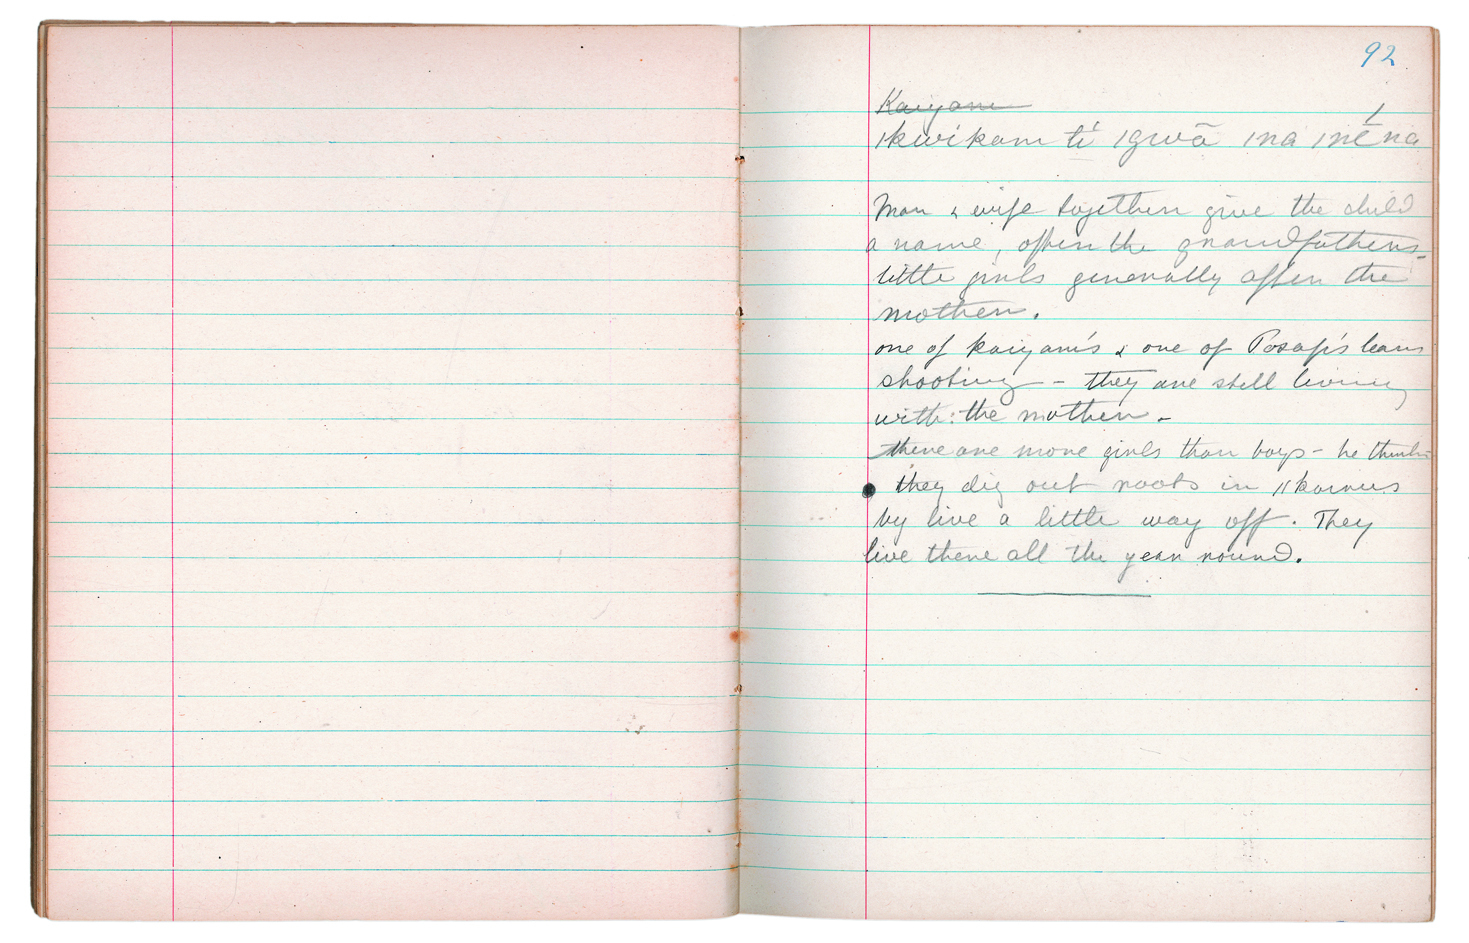 92
Kaiyam
ǀkwikam ti ǀgwā ǀna ǀnēna
Man & wife together give the child
a name, often the grandfathers -
little girls generally after the
mother.
one of kaiyam's & one of Posap's learn
shooting - they are still living
with: the mother -
there are more girls than boys - he thinks
they dig out roots in
by live a little way off. They
live there all the year round.